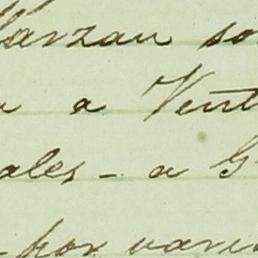 Garzau so
a a Vent
ales - a G
por vari